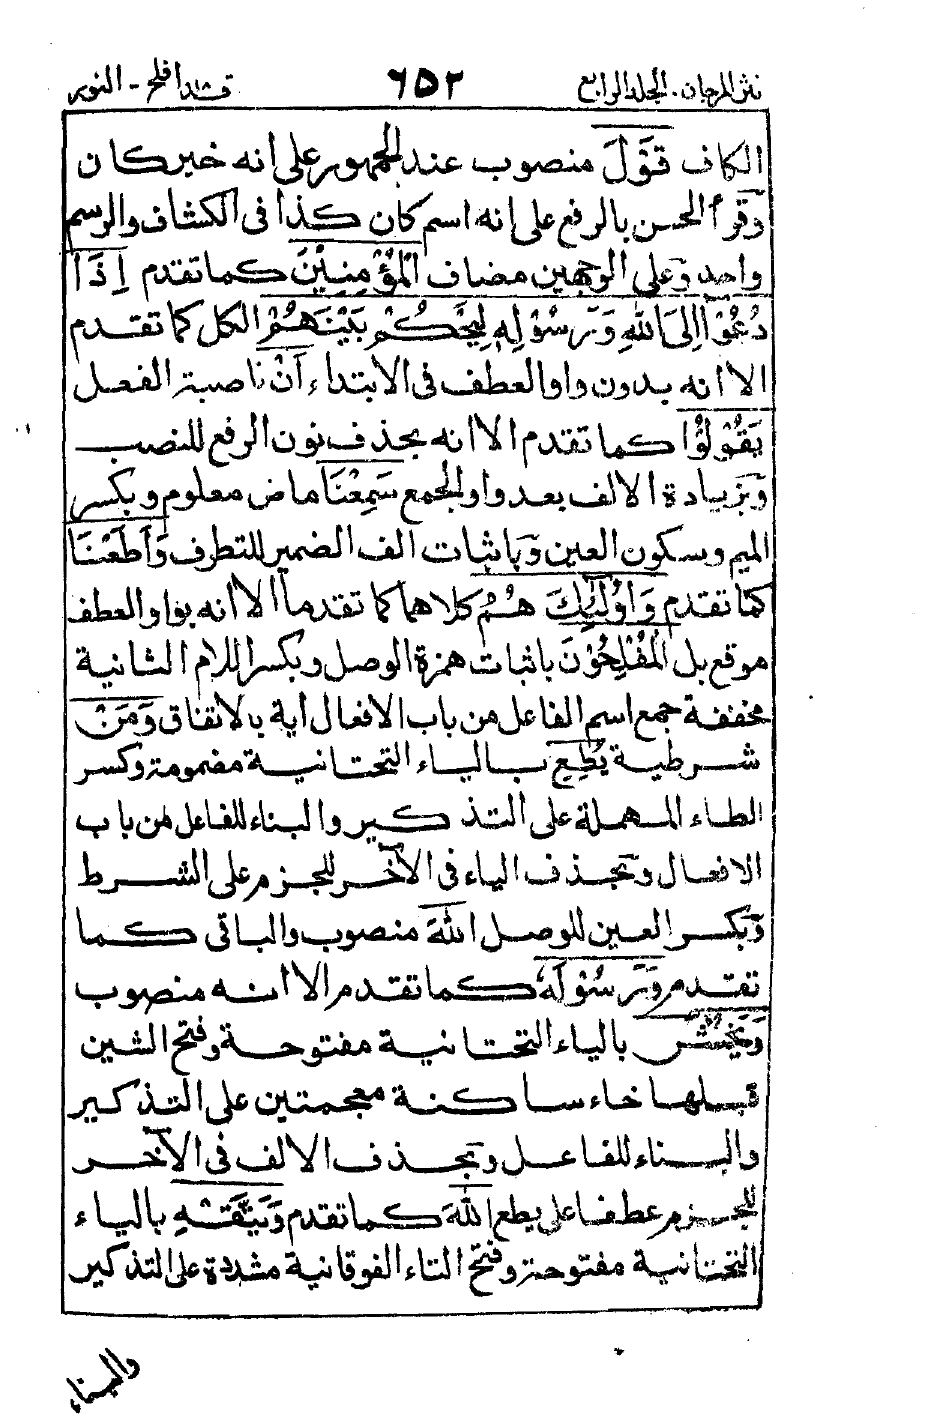 نثر المرجان. الجلد الرابع ٦٥٢ قد افلح - النور
الكاف قَوْلَ منصوب عند الجمهور على انه خبر كان
وقرأ الحسن بالرفع على انه اسم كان كذا فى الكشاف والرسم
واحد وعلى الوجهين مضاف الْمُؤْمِنِيْنَ كما تقدم اِذَا
دُعُوْآ اِلَى اللّٰهِ وَرَسُوْلِهٖ لِيَحْكُمَ بَيْنَهُمْ الكل كما تقدم
الا انه بدون واو العطف فى الابتداء اَنْ ناصبة الفعل
يَقُوْلُوْا كما تقدم الا انه بحذف نون الرفع للنصب
وبزيادة الالف بعد واو الجمع سَمِعْنَا ماض معلوم وبكسر
الميم وبسكون العين وباثبات الف الضمير للتطرف وَاَطَعْنَا
كما تقدم وَاُولٰٓئِكَ هُمُ كلاهما كما تقدما الا انه بواو العطف
موقع بل الْمُفْلِحُوْنَ باثبات همزة الوصل وبكسر اللام الثانية
مخففة جمع اسم الفاعل من باب الافعال اٰية بالاتفاق وَمَنْ
شرطية يُطِعِ بالياء التحتانية مضمومة وكسر
الطاء المهملة على التذكير والبناء للفاعل من باب
الافعال وبحذف الياء فى الآخر للجزم على الشرط
وبكسر العين للوصل اللّٰهَ منصوب والباقى كما
تقدم وَرَسُوْلَهٗ كما تقدم الا انه منصوب
وَيَخْشَ بالياء التحتانية مفتوحة وفتح الشين
قبلها خاء ساكنة معجمتين على التذكير
والبناء للفاعل وبحذف الالف فى الآخر
للجزم عطفا على يطع اللّٰهَ كما تقدم وَيَتَّقْهِ بالياء
التحتانية مفتوحة وفتح التاء الفوقانية مشددة على التذكير
والبناء